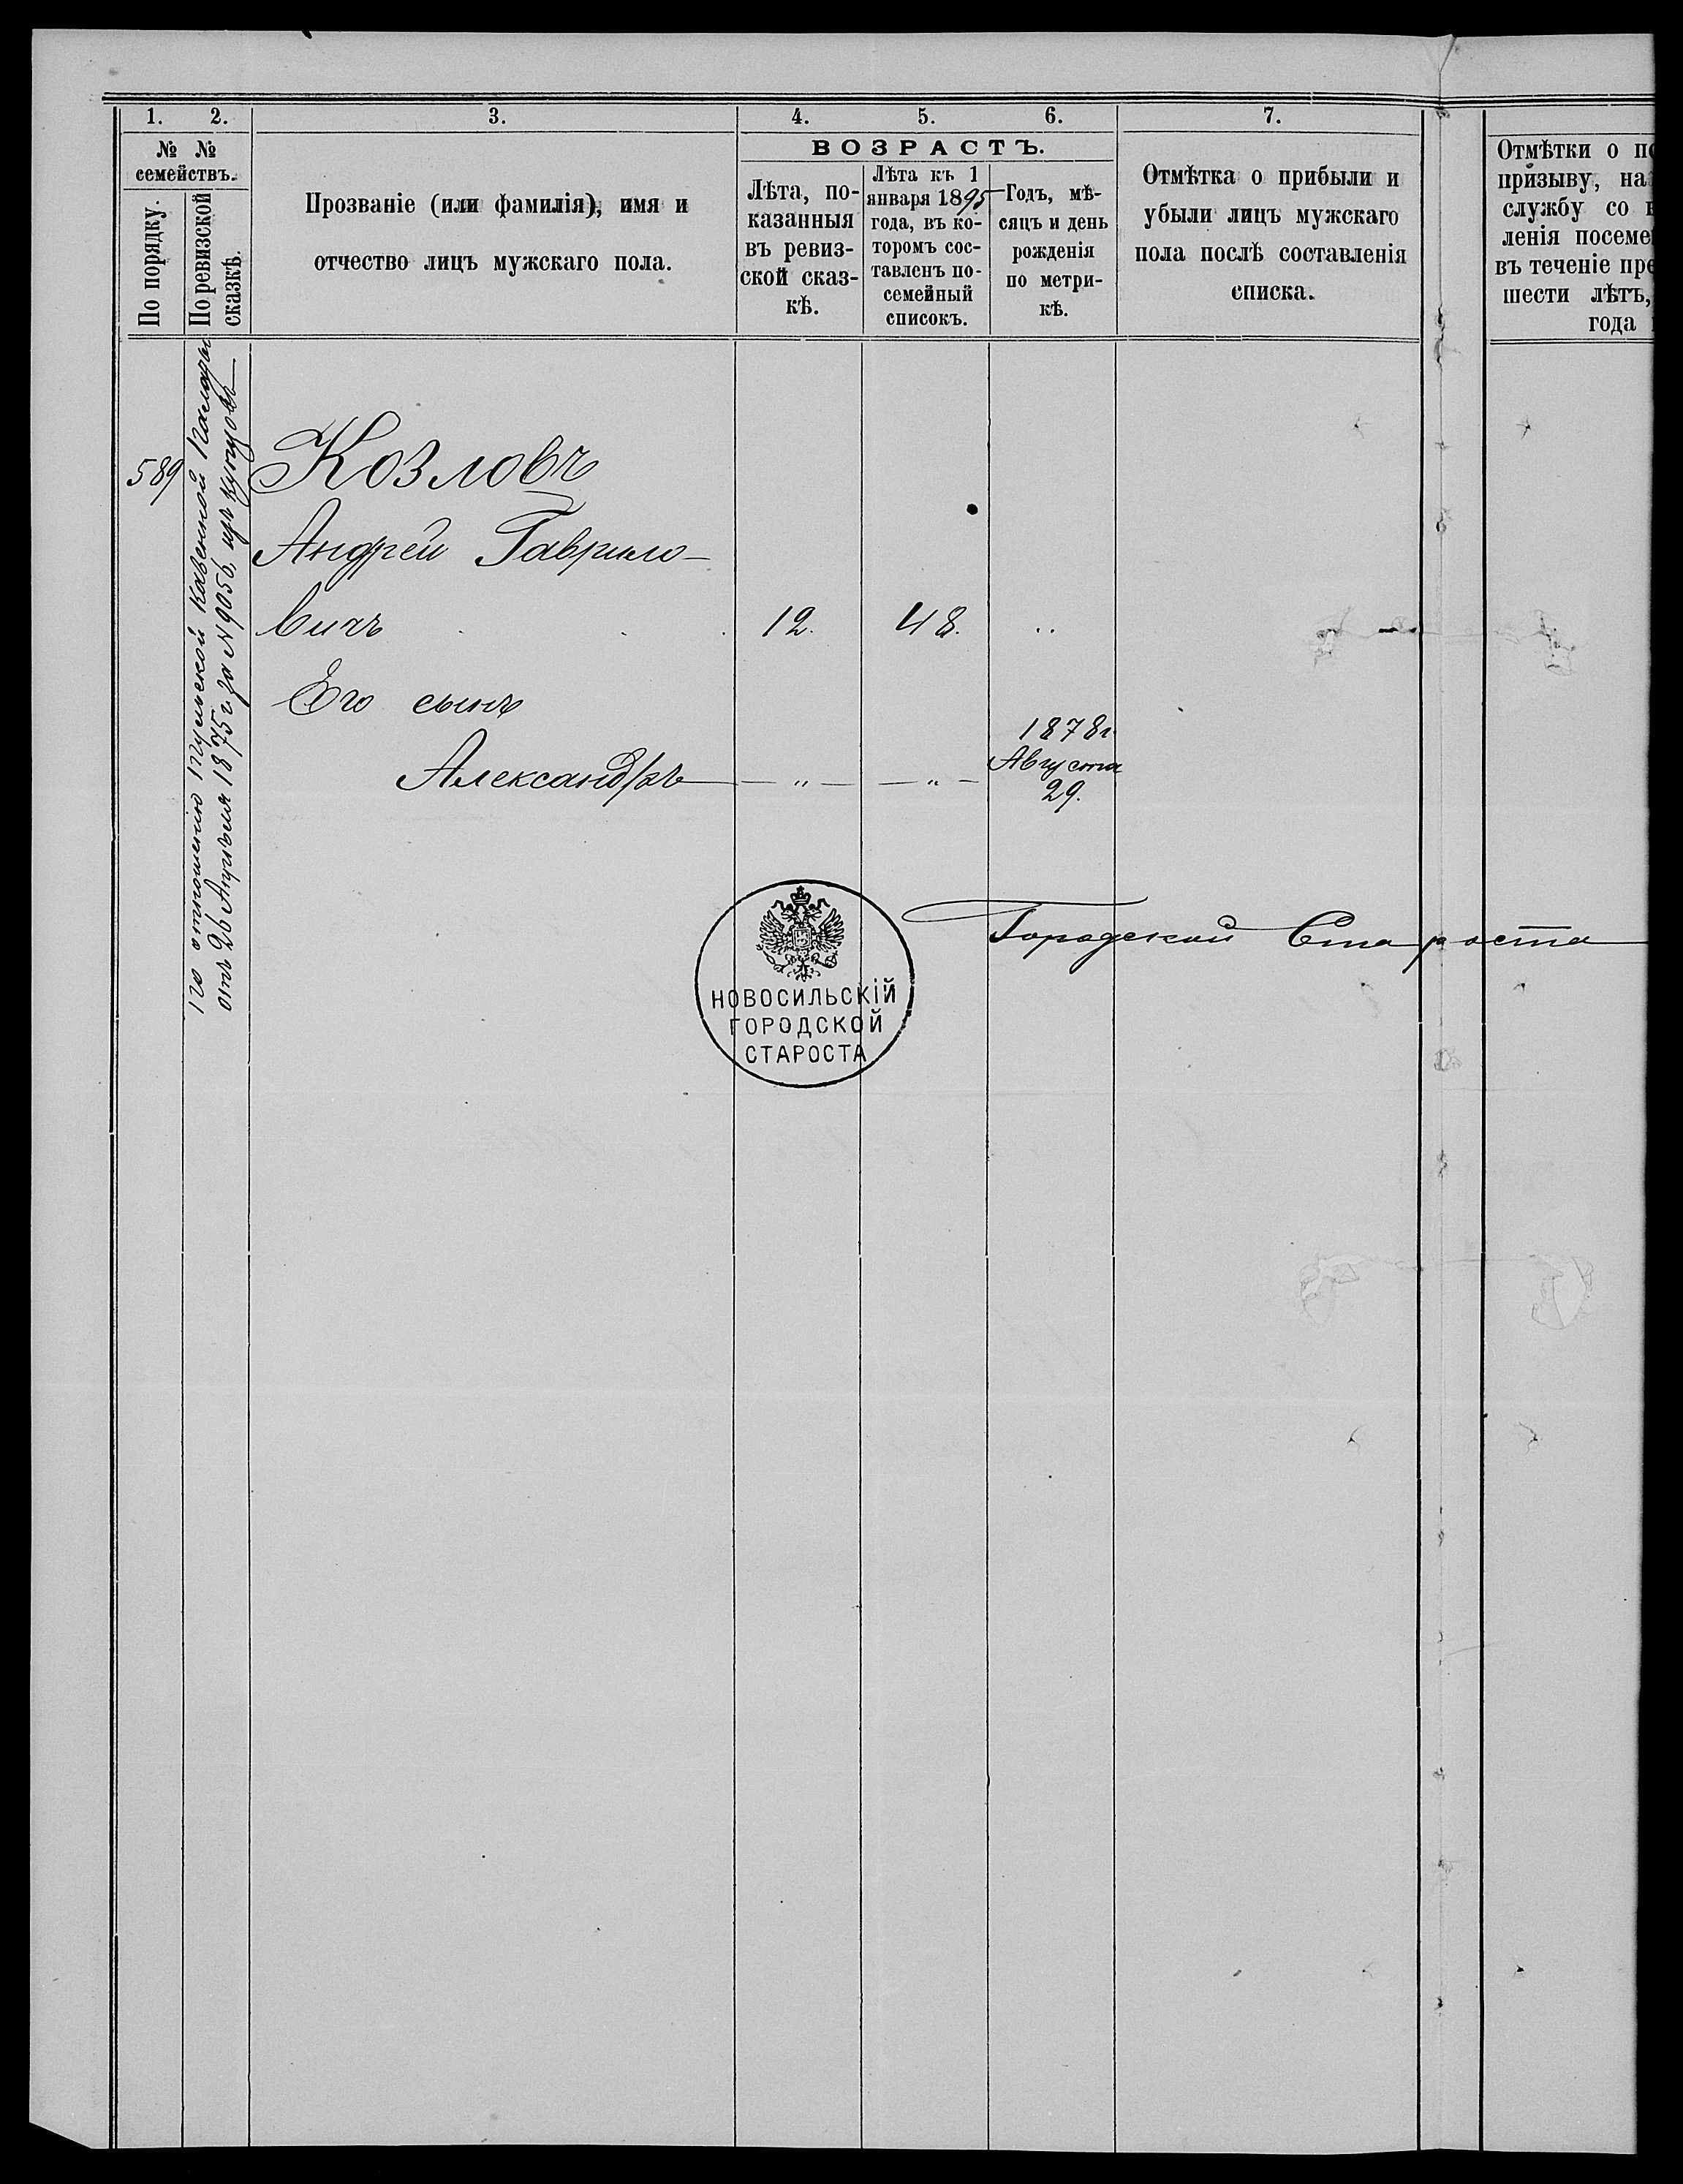 1. 2. 3. 4. 5. 6. 7.
№ № семействъ.
По порядку.
По ревизской сказкѣ.
Прозваніе (или фамилія), имя и
отчество лицъ мужскаго пола.
ВОЗРАСТЪ.
Лѣта, по-
казанныя
въ ревиз-
ской сказ-
кѣ.
Лѣта къ 1
января 1895
года, въ ко-
торомъ сос-
тавленъ по-
семейный
списокъ.
Годъ, мѣ-
сяцъ и день
рожденія
по метри-
кѣ.
Отмѣтка о прибыли и
убыли лицъ мужскаго
пола послѣ составленія
списка.
Отмѣтки о
призыву, на
службу со
ленія посеме
въ теченіе пре
шести лѣтъ,
года
589
по отношенію Тульской Казенной Палаты
отъ 26 Апрѣля 1875 г. за № 9056, изъ купцовъ
Козловъ
Андрей Гаврило-
вичъ 12. 48. "
Его сынъ
Александръ — " — — " —
1878 г.
Августа
29.
Городской Староста
НОВОСИЛЬСКІЙ
ГОРОДСКОЙ
СТАРОСТА